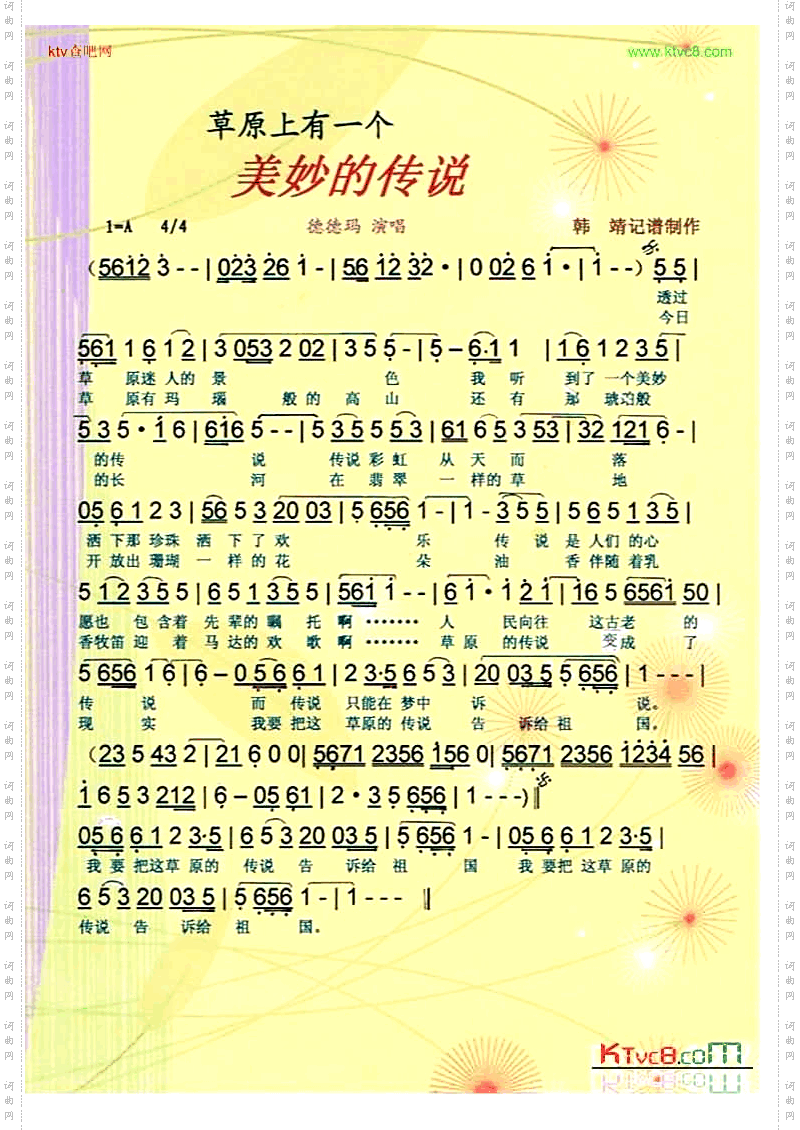 ktv查吧网 www.ktvc8.com
草原上有一个
美妙的传说
1=A 4/4 德德玛 演唱 韩 靖记谱制作
(5612 3 - - | 023 26 1 - | 56 12 32· | 0 02 6 1· | 1 - - ) 5 5 |
透过
今日
561 1 6 1 2 | 3 053 2 02 | 3 5 5 - | 5 – 6·1 1 | 1 6 1 2 3 5 |
草 原迷 人的 景 色 我 听 到了 一个美妙
草 原有 玛 瑙 般 的 高 山 还 有 那 琥珀般
5 3 5 · 1 6 | 616 5 - - | 5 3 5 5 5 3 | 61 6 5 3 53 | 32 121 6 - |
的传 说 传说 彩 虹 从 天 而 落
的长 河 在 翡 翠 一 样的 草 地
05 6 1 2 3 | 56 5 3 20 03 | 5 656 1 - | 1 - 3 5 5 | 5 6 5 1 3 5 |
洒 下那 珍珠 洒 下 了 欢 乐 传 说 是 人们 的心
开 放出 珊瑚 一 样 的 花 朵 油 香 伴随 着乳
5 1 2 3 5 5 | 6 5 1 3 5 5 | 561 1 - - | 6 1 · 1 2 1 | 16 5 6561 50 |
愿也 包 含着 先 辈的 嘱 托 啊 ······· 人 民向往 这古老 的
香牧笛 迎 着 马 达的 欢 歌 啊 ······· 草 原 的传说 变成 了
5 656 1 6 | 6 – 0 5 6 6 1 | 2 3·5 6 5 3 | 20 03 5 5 656 | 1 - - - |
传 说 而 传说 只能在 梦中 诉 说。
现 实 我要 把这 草原的 传说 告 诉给 祖 国。
(23 5 43 2 | 21 6 0 0 | 5671 2356 156 0 | 5671 2356 1234 56 |
1 6 5 3 212 | 6 – 05 61 | 2 · 3 5 656 | 1 - - -) ‖
05 6 6 1 2 3·5 | 6 5 3 20 03 5 | 5 656 1 - | 05 6 6 1 2 3·5 |
我 要 把这草 原的 传说 告 诉给 祖 国 我 要把 这草 原的
6 5 3 20 03 5 | 5 656 1 - | 1 - - - ‖
传说 告 诉给 祖 国。
KTvc8.com
词曲网